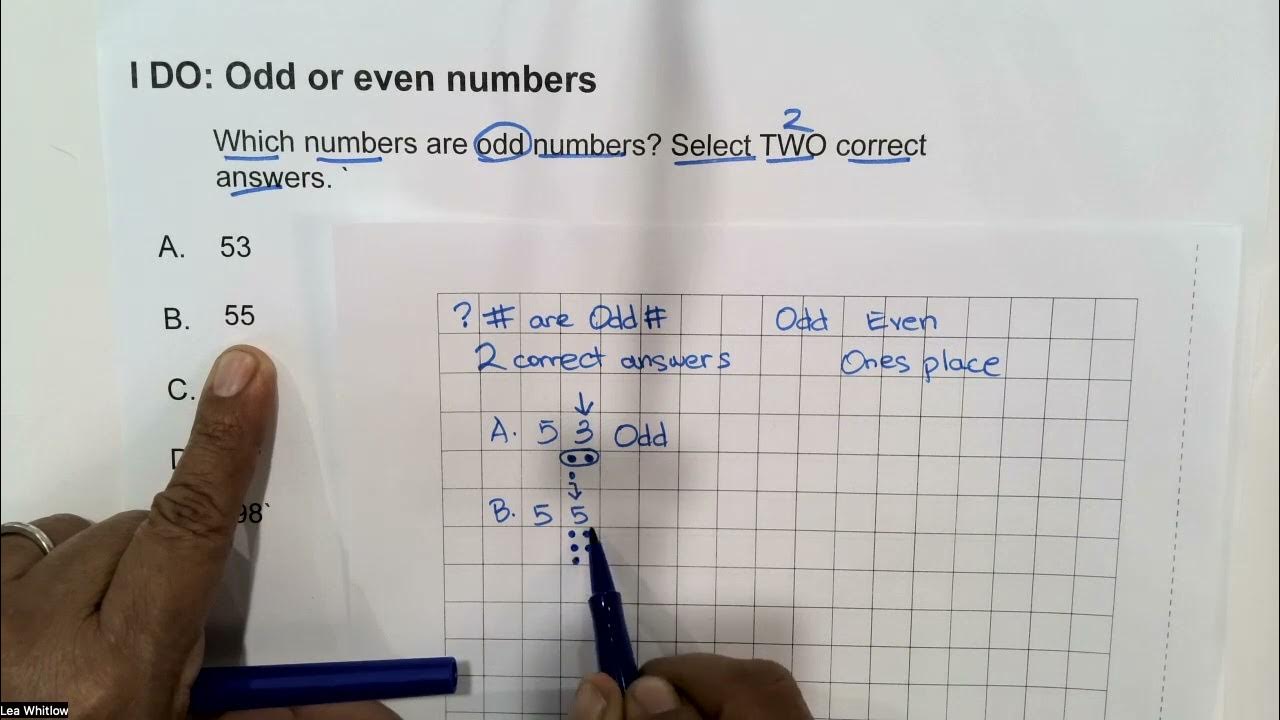 I DO: Odd or even numbers
2
Which numbers are odd numbers? Select TWO correct
answers. `
A. 53
B. 55
C.
98`
? # are Odd #
Odd Even
2 correct answers
Ones place
A. 5 3 Odd
B. 5 5
Lea Whitlow